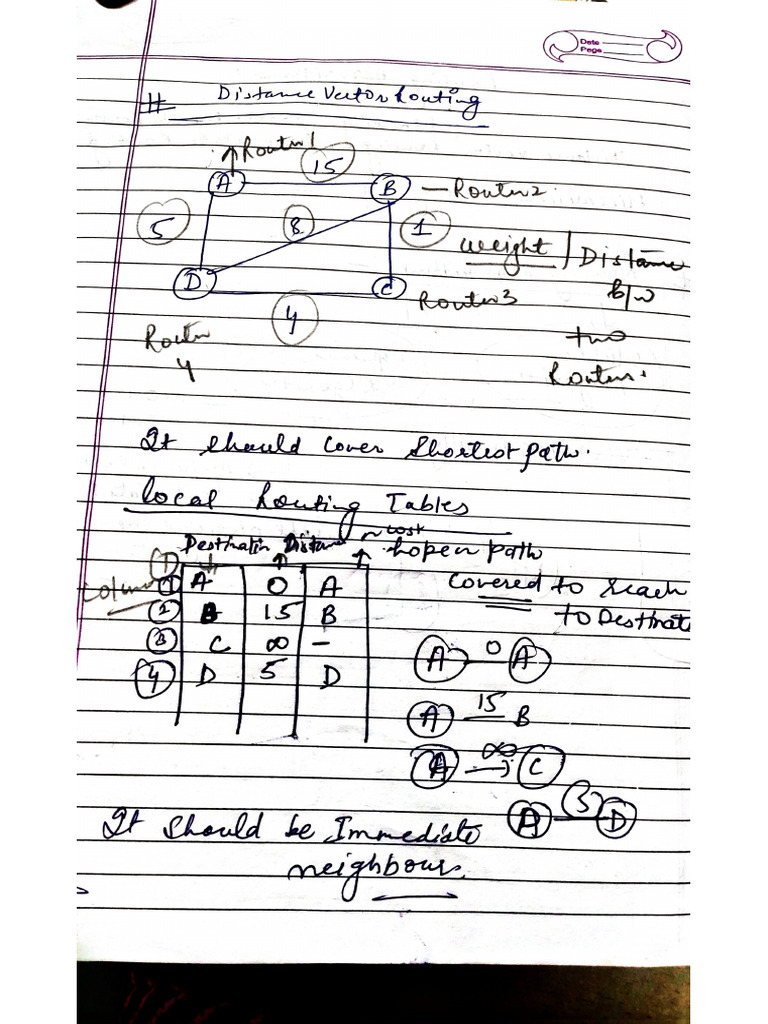 Date
Page
# Distance Vector Routing
Router 1
15
A
B
— Router 2
5
8
1
weight / Distance
b/w
two
Routers.
D
C
Router 3
4
Router
4
It should cover Shortest path.
local Routing Tables
cost
Destination Distance
hop or path
covered to reach
to Destinat
Column
① A 0 A
② B 15 B
③ C ∞ –
④ D 5 D
A 0 A
A 15 B
A ∞ → C
A 5 D
It should be Immediate
neighbour.